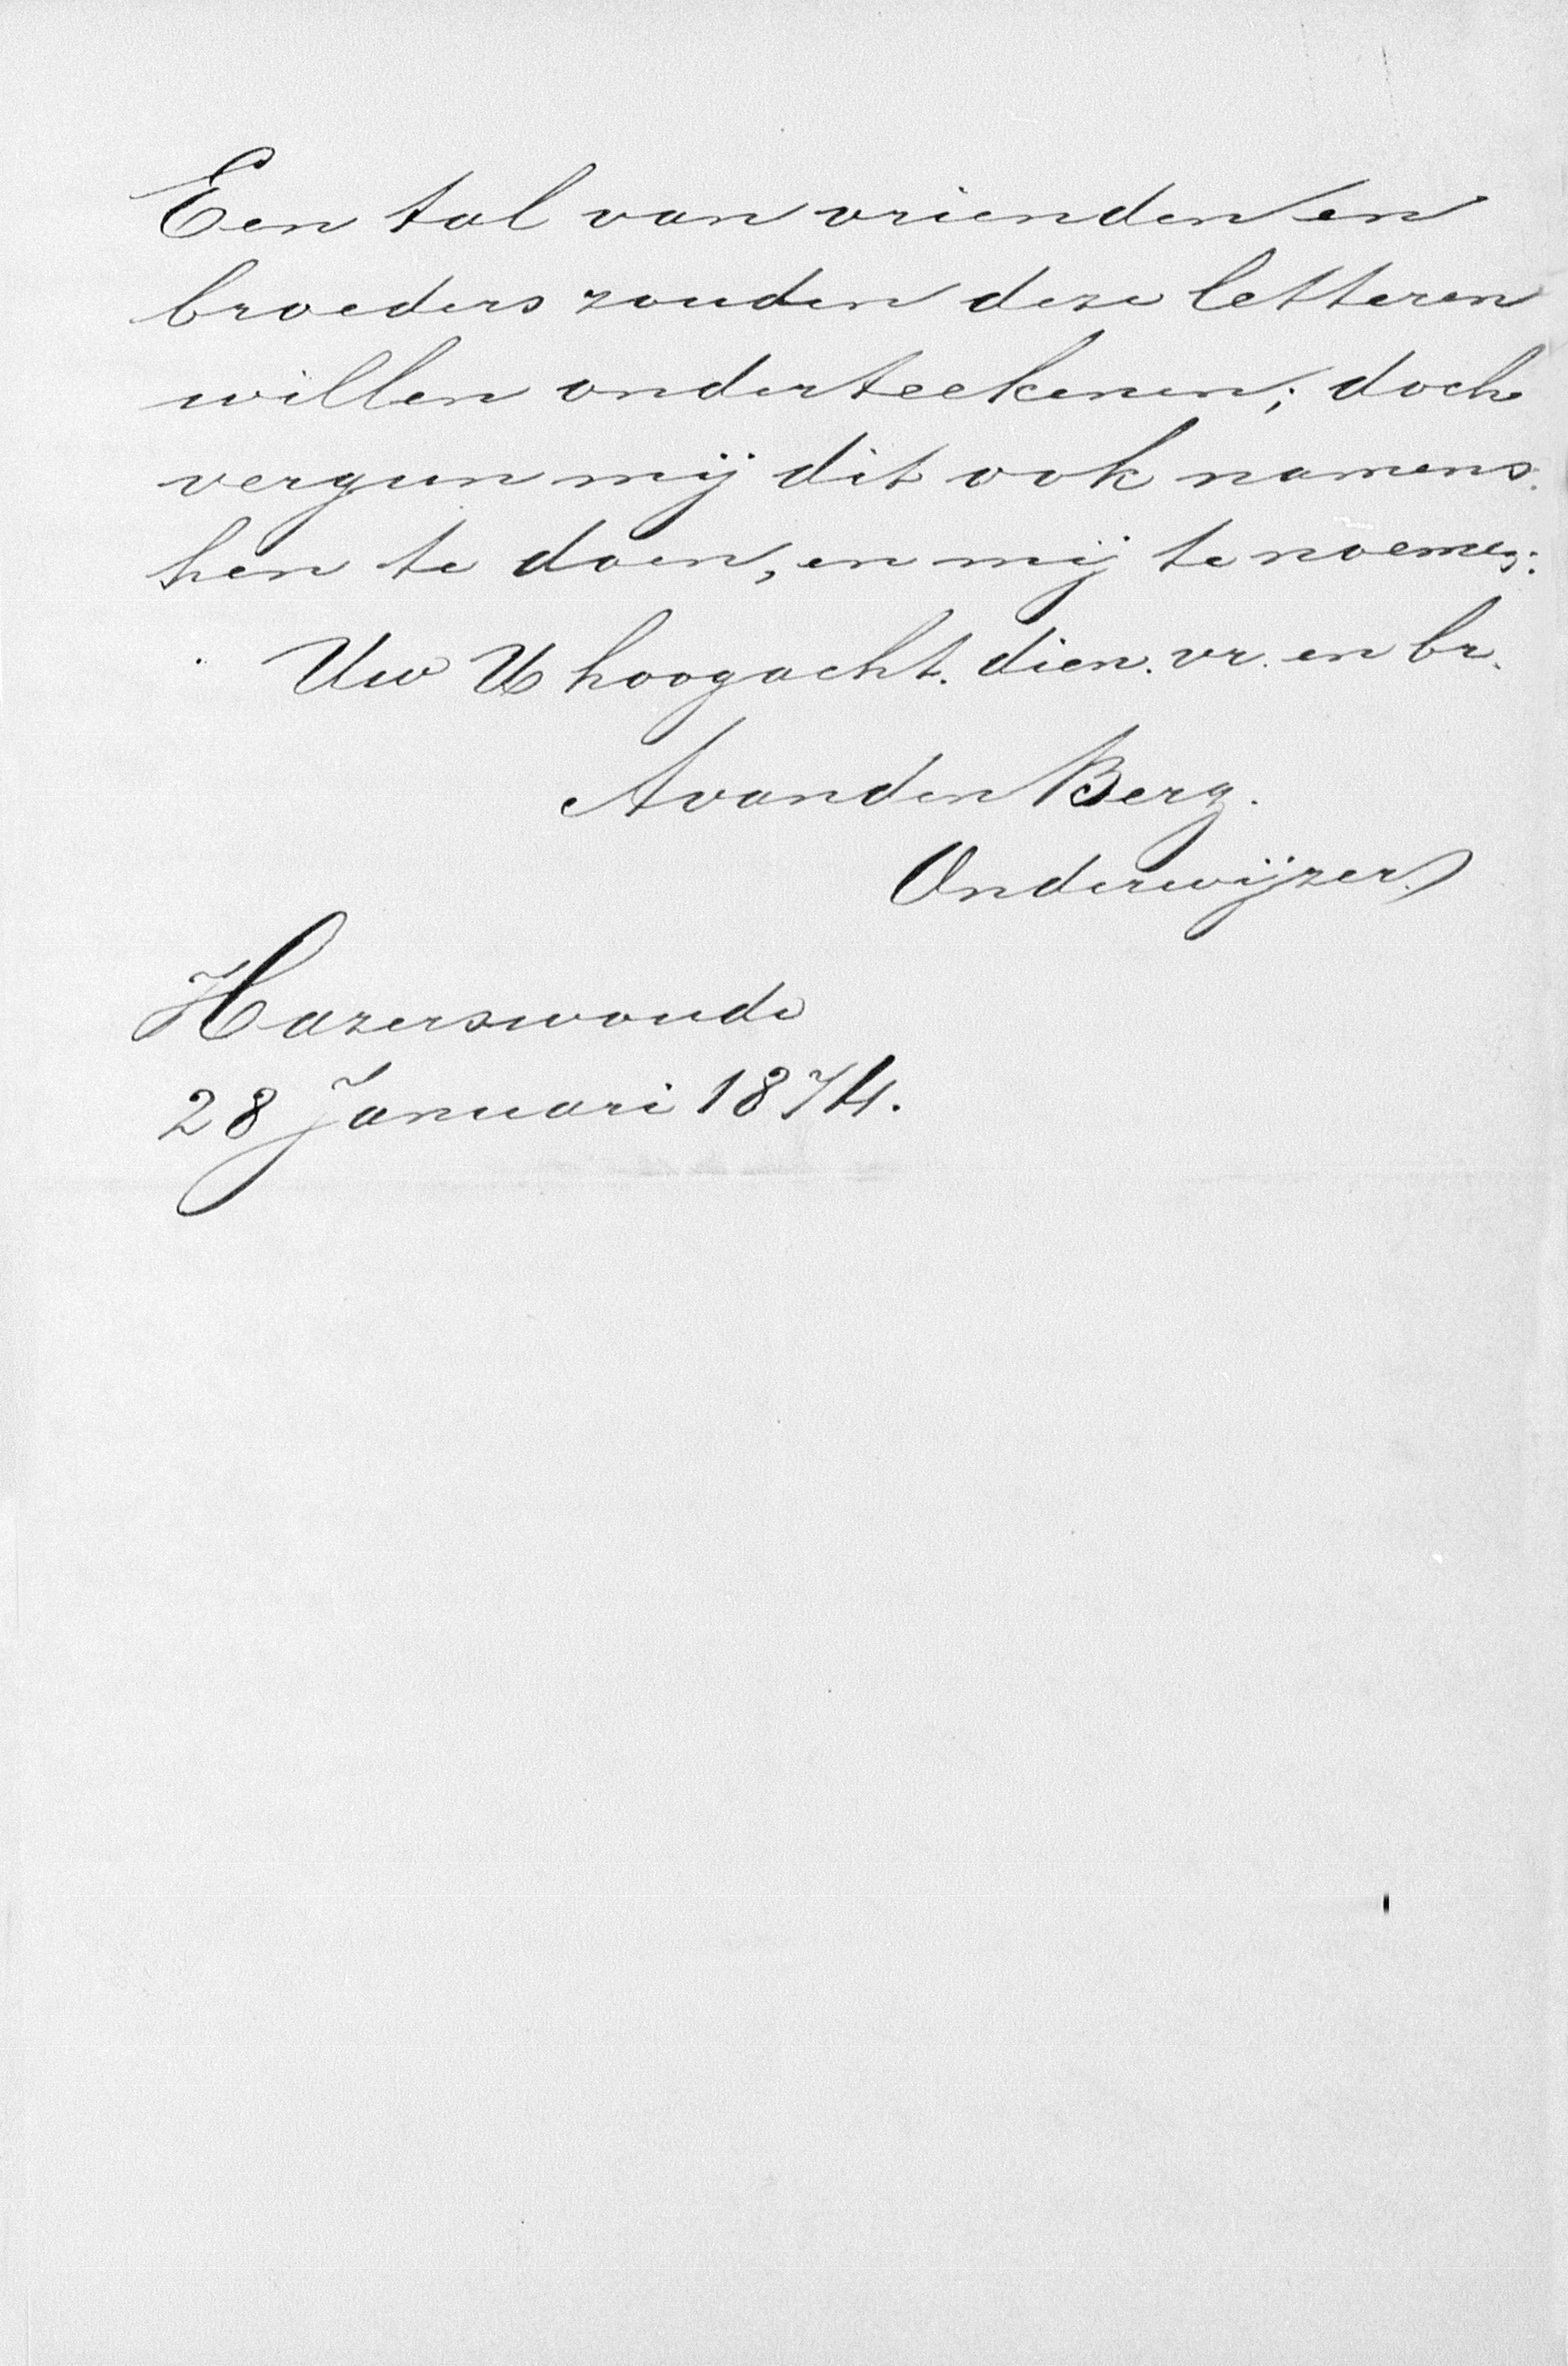 Een tal van vrienden en
broeders zouden deze letteren
willen onderteekenen; doch
vergun mij dit ook namens
hen te doen, en mij te noemen:
Uw U hoogacht. dien. vr. en br.
A van den Berg.
Onderwijzer.
Hazerswoude
28 Januari 1874.